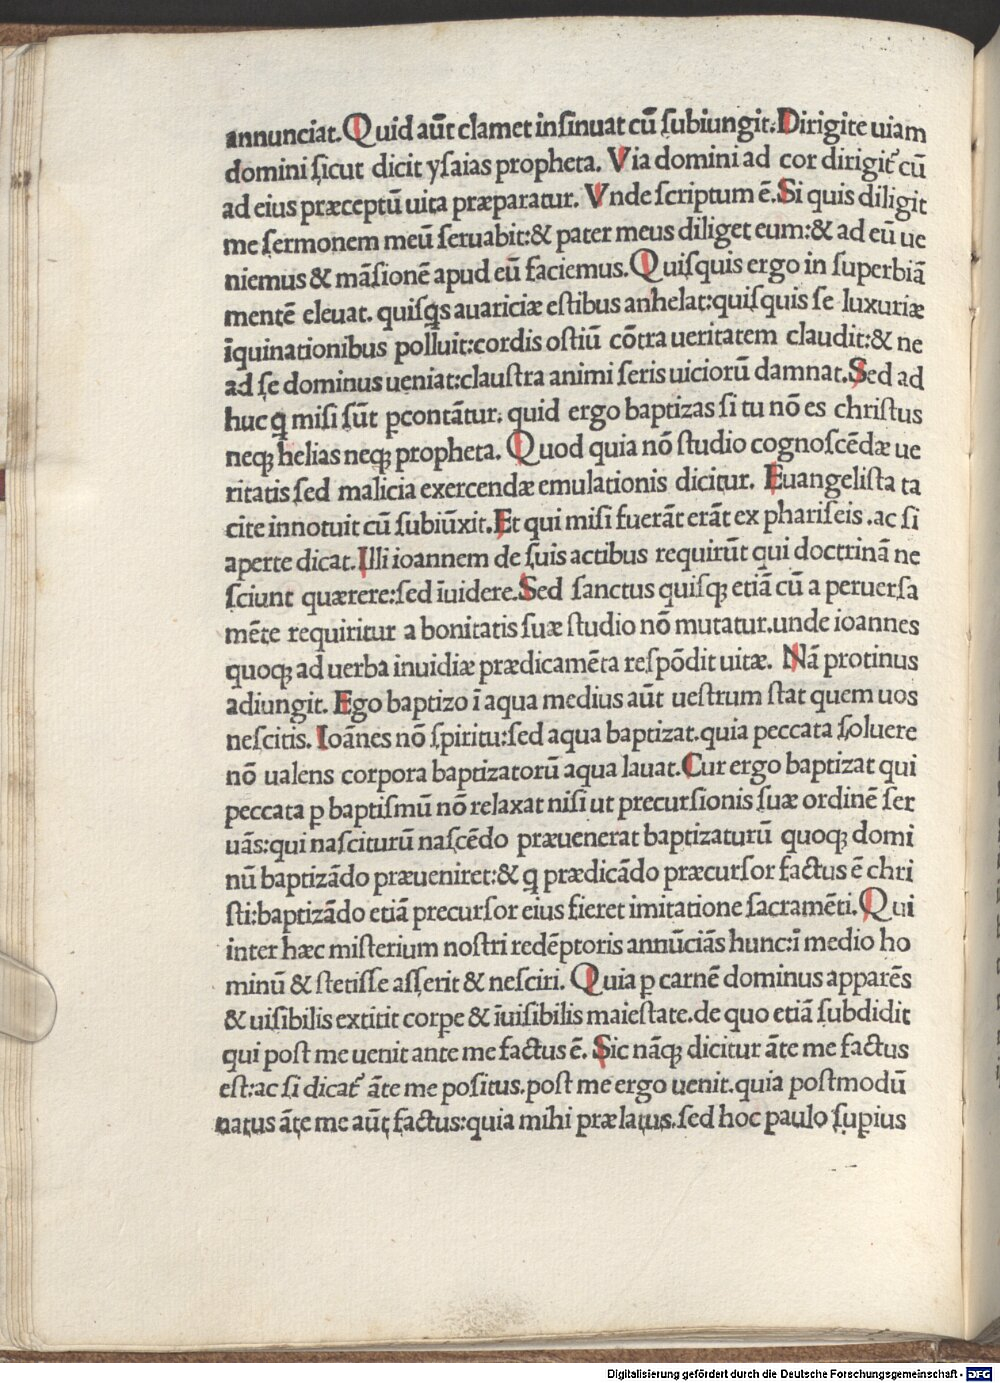 annunciat. Quid aūt clamet insinuat cū subiungit. Dirigite uiam
domini sicut dicit ysaias propheta. Via domini ad cor dirigit᷑ cū
ad eius præceptū uita præparatur. Vnde scriptum ē. Si quis diligit
me sermonem meū seruabit: & pater meus diliget eum: & ad eū ue
niemus & māsionē apud eū faciemus. Quisquis ergo in superbiā
mentē eleuat. quisq̄s auariciæ estibus anhelat: quisquis se luxuriæ
īquinationibus polluit: cordis ostiū cōtra ueritatem claudit: & ne
ad se dominus ueniat: claustra animi seris uiciorū damnat. Sed ad
huc q̄ misi sūt ꝑcontātur. quid ergo baptizas si tu nō es christus
neqꝫ helias neqꝫ propheta. Quod quia nō studio cognoscēdæ ue
ritatis sed malicia exercendæ emulationis dicitur. Euangelista ta
cite innotuit cū subiūxit. Et qui misi fuerāt erāt ex phariseis. ac si
aperte dicat. Illi ioannem de suis actibus requirūt qui doctrinā ne
sciunt quærere: sed īuidere. Sed sanctus quisqꝫ etiā cū a peruersa
mēte requiritur a bonitatis suæ studio nō mutatur. unde ioannes
quoqꝫ ad uerba inuidiæ prædicamēta respōdit uitæ. Nā protinus
adiungit. Ego baptizo ī aqua medius aūt uestrum stat quem uos
nescitis. Ioānes nō spiritu: sed aqua baptizat. quia peccata soluere
nō ualens corpora baptizatorū aqua lauat. Cur ergo baptizat qui
peccata ꝑ baptismū nō relaxat nisi ut precursionis suæ ordinē ser
uās: qui nasciturū nascēdo præuenerat baptizaturū quoqꝫ domi
nū baptizādo præueniret: & q̄ prædicādo præcursor factus ē chri
sti: baptizādo etiā precursor eius fieret imitatione sacramēti. Qui
inter hæc misterium nostri redēptoris annūciās hunc: ī medio ho
minū & stetisse asserit & nesciri. Quia ꝑ carnē dominus apparēs
& uisibilis extitit corꝑe & īuisibilis maiestate. de quo etiā subdidit
qui post me uenit ante me factus ē. Sic nāqꝫ dicitur āte me factus
est: ac si dicat᷑ āte me positus. post me ergo uenit. quia postmodū
natus āte me aūt factus: quia mihi prælatus. sed hoc paulo suꝑius
Digitalisierung gefördert durch die Deutsche Forschungsgemeinschaft - DFG